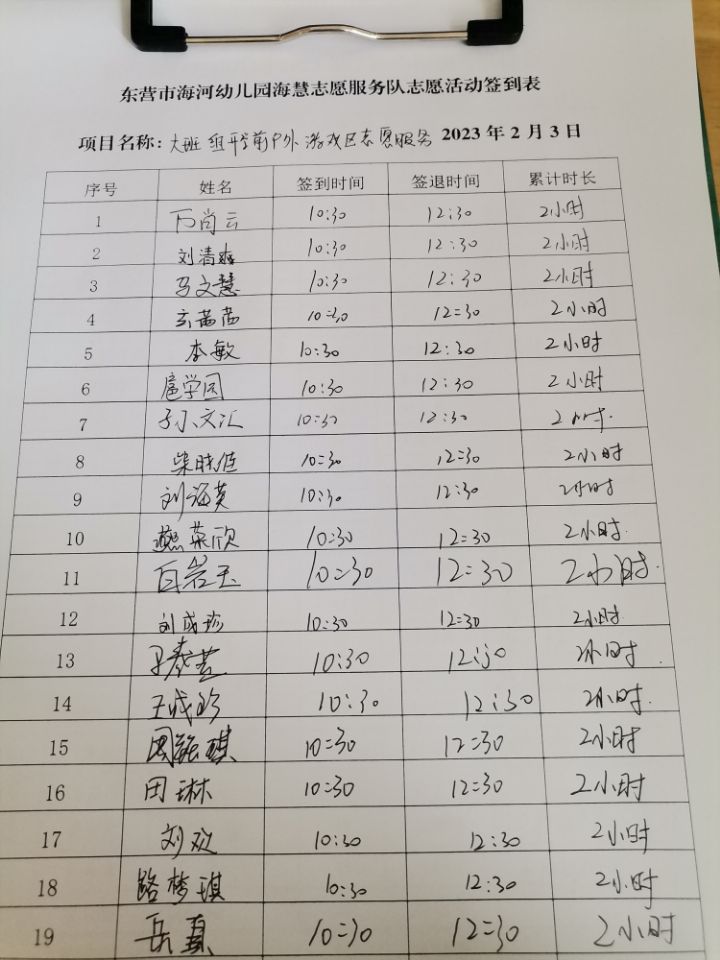 东营市海河幼儿园海慧志愿服务队志愿活动签到表
项目名称：大班组开学前户外游戏区志愿服务 2023 年 2 月 3 日
序号 姓名 签到时间 签退时间 累计时长
1 万尚云 10:30 12:30 2小时
2 刘清爽 10:30 12:30 2小时
3 马文慧 10:30 12:30 2小时
4 茜茜 10:30 12:30 2小时
5 李敏 10:30 12:30 2小时
6 扈学园 10:30 12:30 2小时
7 孙文汇 10:30 12:30 2小时
8 柴晓 10:30 12:30 2小时
9 刘海英 10:30 12:30 2小时
10 燕荣欣 10:30 12:30 2小时
11 白岩玉 10:30 12:30 2小时
12 刘成珍 10:30 12:30 2小时
13 10:30 12:30 2小时
14 王成珍 10:30 12:30 2小时
15 周 琪 10:30 12:30 2小时
16 田琳 10:30 12:30 2小时
17 刘欢 10:30 12:30 2小时
18 路梦琪 10:30 12:30 2小时
19 岳真 10:30 12:30 2小时